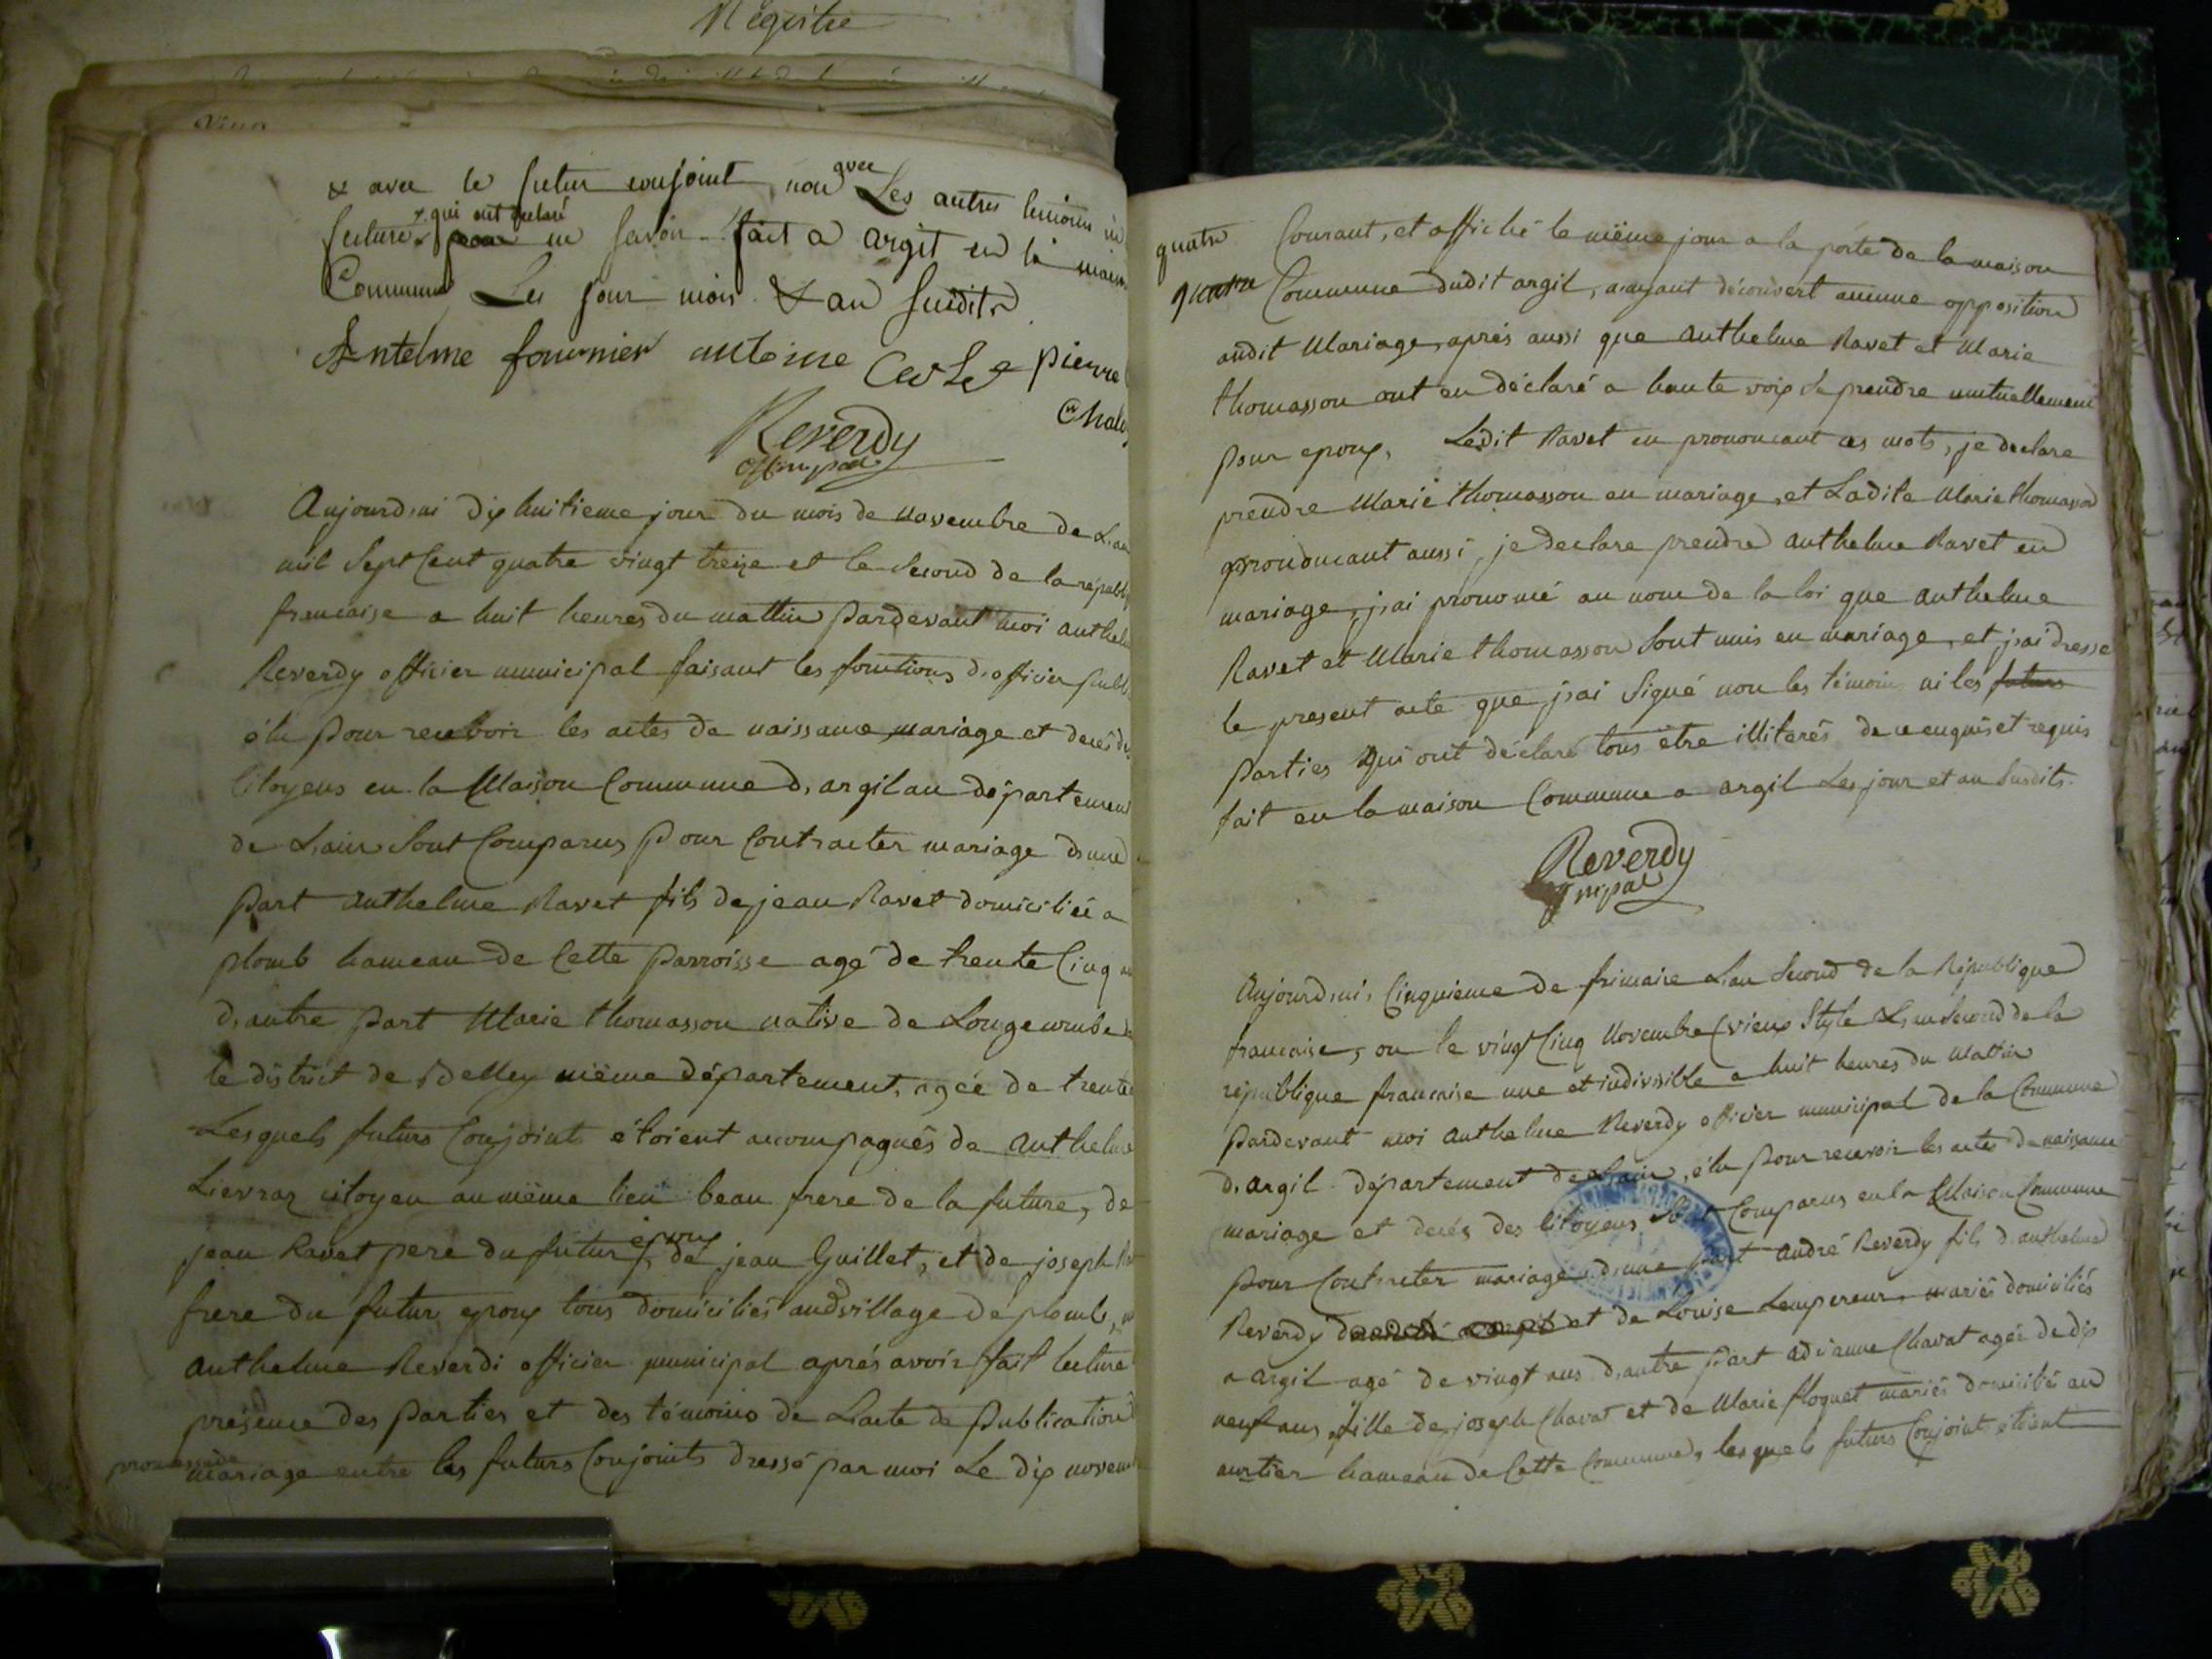 Régistre
& avec le futur conjoint, non avec Les autres temoins ni
future x qui ont declaré ne savoir. fait a argit en la maison
Commune Les jour mois & an susdits
Antelme fournier antoine pierre
Reverdy
off. mpal
Aujourd,ui dix huitieme jour du mois de novembre de L,an
mil sept Cent quatre vingt treize et le second de la républ
francaise a huit heures du mattin pardevant moi anthel
Reverdy officier municipal faisant les fonctions d,officier publi
élu pour recevoir les actes de naissance, mariage et decés d
Citoyens en la Maison Commune d,argil au département
de L,ain sont Comparus pour Contracter mariage d,une
part anthelme Ravet fils de jean Ravet domicilié a
plomb hameau de Cette parroisse agé de trente Cinq
d,autre part Marie thomasson native de Longecombe
le district de Belley même département, agée de trente
Lesquels futurs Conjoints étoient accompagnés de anthelme
Lievraz citoyen au même lieu beau frere de la future, de
jean Ravet pere du futur époux, de jean Guillet, et de joseph
frere du futur epoux tous domiciliés aud. village de plomb,
anthelme Reverdi officier municipal aprés avoir fait lecture
présence des parties et des témoins de L'acte de publication
promesse de
mariage entre les futurs Conjoints dressé par moi Le dix novem
quatre
quatre
Courant, et affiché le même jour a la porte de la maison
Commune dudit argil, n,ayant découvert aucune opposition
audit Mariage, aprés aussi que anthelme Ravet et Marie
thomasson ont eu déclaré a haute voix se prendre mutuellement
pour epoux, Ledit Ravet en prononcant ces mots, je declare
prendre Marie thomasson en mariage, et Ladite Marie thomasson
prononcant aussi, je declare prendre anthelme Ravet en
mariage, j,ai prononcé au nom de la loi que anthelme
Ravet et Marie thomasson sont unis en mariage, et j,ai dressé
le present acte que j,ai signé non les témoins ni les futurs
parties qui ont déclaré tous être illiterés de ce enquis et requis
fait en la maison Commune a argil Les jour et an susdits.
Reverdy
off mpal
Aujourd,ui, Cinquieme de frimaire L,an second de la République
francaise, ou le vingt Cinq Novembre (vieux Style L,an second de la
république francaise une et indivisible a huit heures du Mattin
pardevant moi anthelme Reverdy officier municipal de la Commune
d,argil département de L,ain, élu pour recevoir les actes de naissance
mariage et decés des Citoyens, sont Comparus en la Maison Commune
pour Contracter mariage, d,une part andré Reverdy fils d,anthelme
Reverdy et de Louise Lempereur mariés domiciliés
a argil agé de vingt ans d,autre part adrianne Chavat agée de dix
neuf ans, fille de joseph Chavat et de Marie floquet mariés domiciliés au
hameau de Cette Commune, lesquels futurs Conjoints étoient